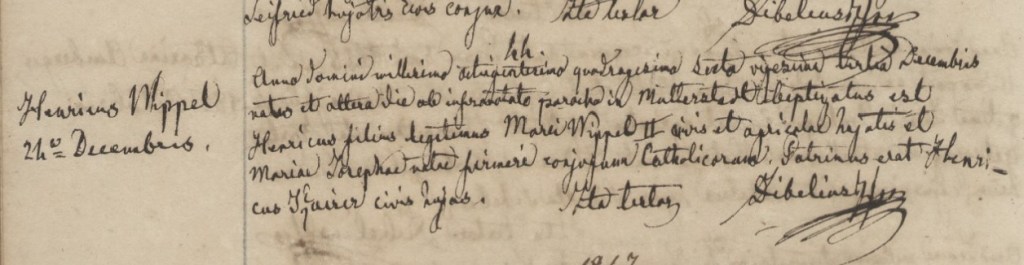 Seifried hujatis civis conjux. Ita testor Dibelius
hh.
Anno domini millesimo octingentesimo quadragesimo sexto vigesima tertia Decembris
Henricus Wippel
natus et altera die ab infrascripto parocho in Mutterstadt baptizatus est
24ta Decembris.
Henricus filius legitimus Marci Wippel II civis et agricolae hujatis et
Mariae Josephae natae conjugum Catholicorum. Patrinus erat Henri-
cus civis hujas. Ita testor Dibelius
1847